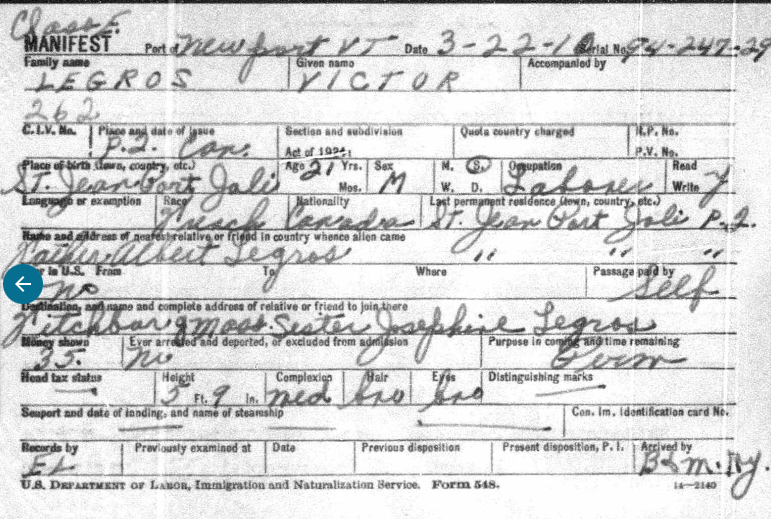 Class E.
MANIFEST Port of Newport VT Date 3-22-1 Serial No. 94-247-29
Family name Given name Accompanied by
LEGROS VICTOR
262
C.I.V. No. Place and date of issue Section and subdivision Quota country charged R.P. No.
P.2. Can. Act of 1924: P.V. No.
Place of birth (town, country, etc.) Age 21 Yrs. Sex M. S. Occupation Read
St. Jean Port Joli Mos. M W. D. Laborer Write y
Language or exemption Race Nationality Last permanent residence (town, country, etc.)
French Canada St. Jean Port Joli P.2.
Name and address of nearest relative or friend in country whence alien came
Father Albert Legros " " "
er in U.S. From To Where Passage paid by
no Self
Destination, and name and complete address of relative or friend to join there
Fitchburg Mass. Sister Josephine Legros
Money shown Ever arrested and deported, or excluded from admission Purpose in coming and time remaining
35. no Perm
Head tax status Height Complexion Hair Eyes Distinguishing marks
5 Ft. 9 In. med bro bro
Seaport and date of landing, and name of steamship Con. Im. Identification card No.
Records by Previously examined at Date Previous disposition Present disposition, P. I. Arrived by
B&M. Ry.
U.S. DEPARTMENT OF LABOR, Immigration and Naturalization Service. Form 548. 14—2140